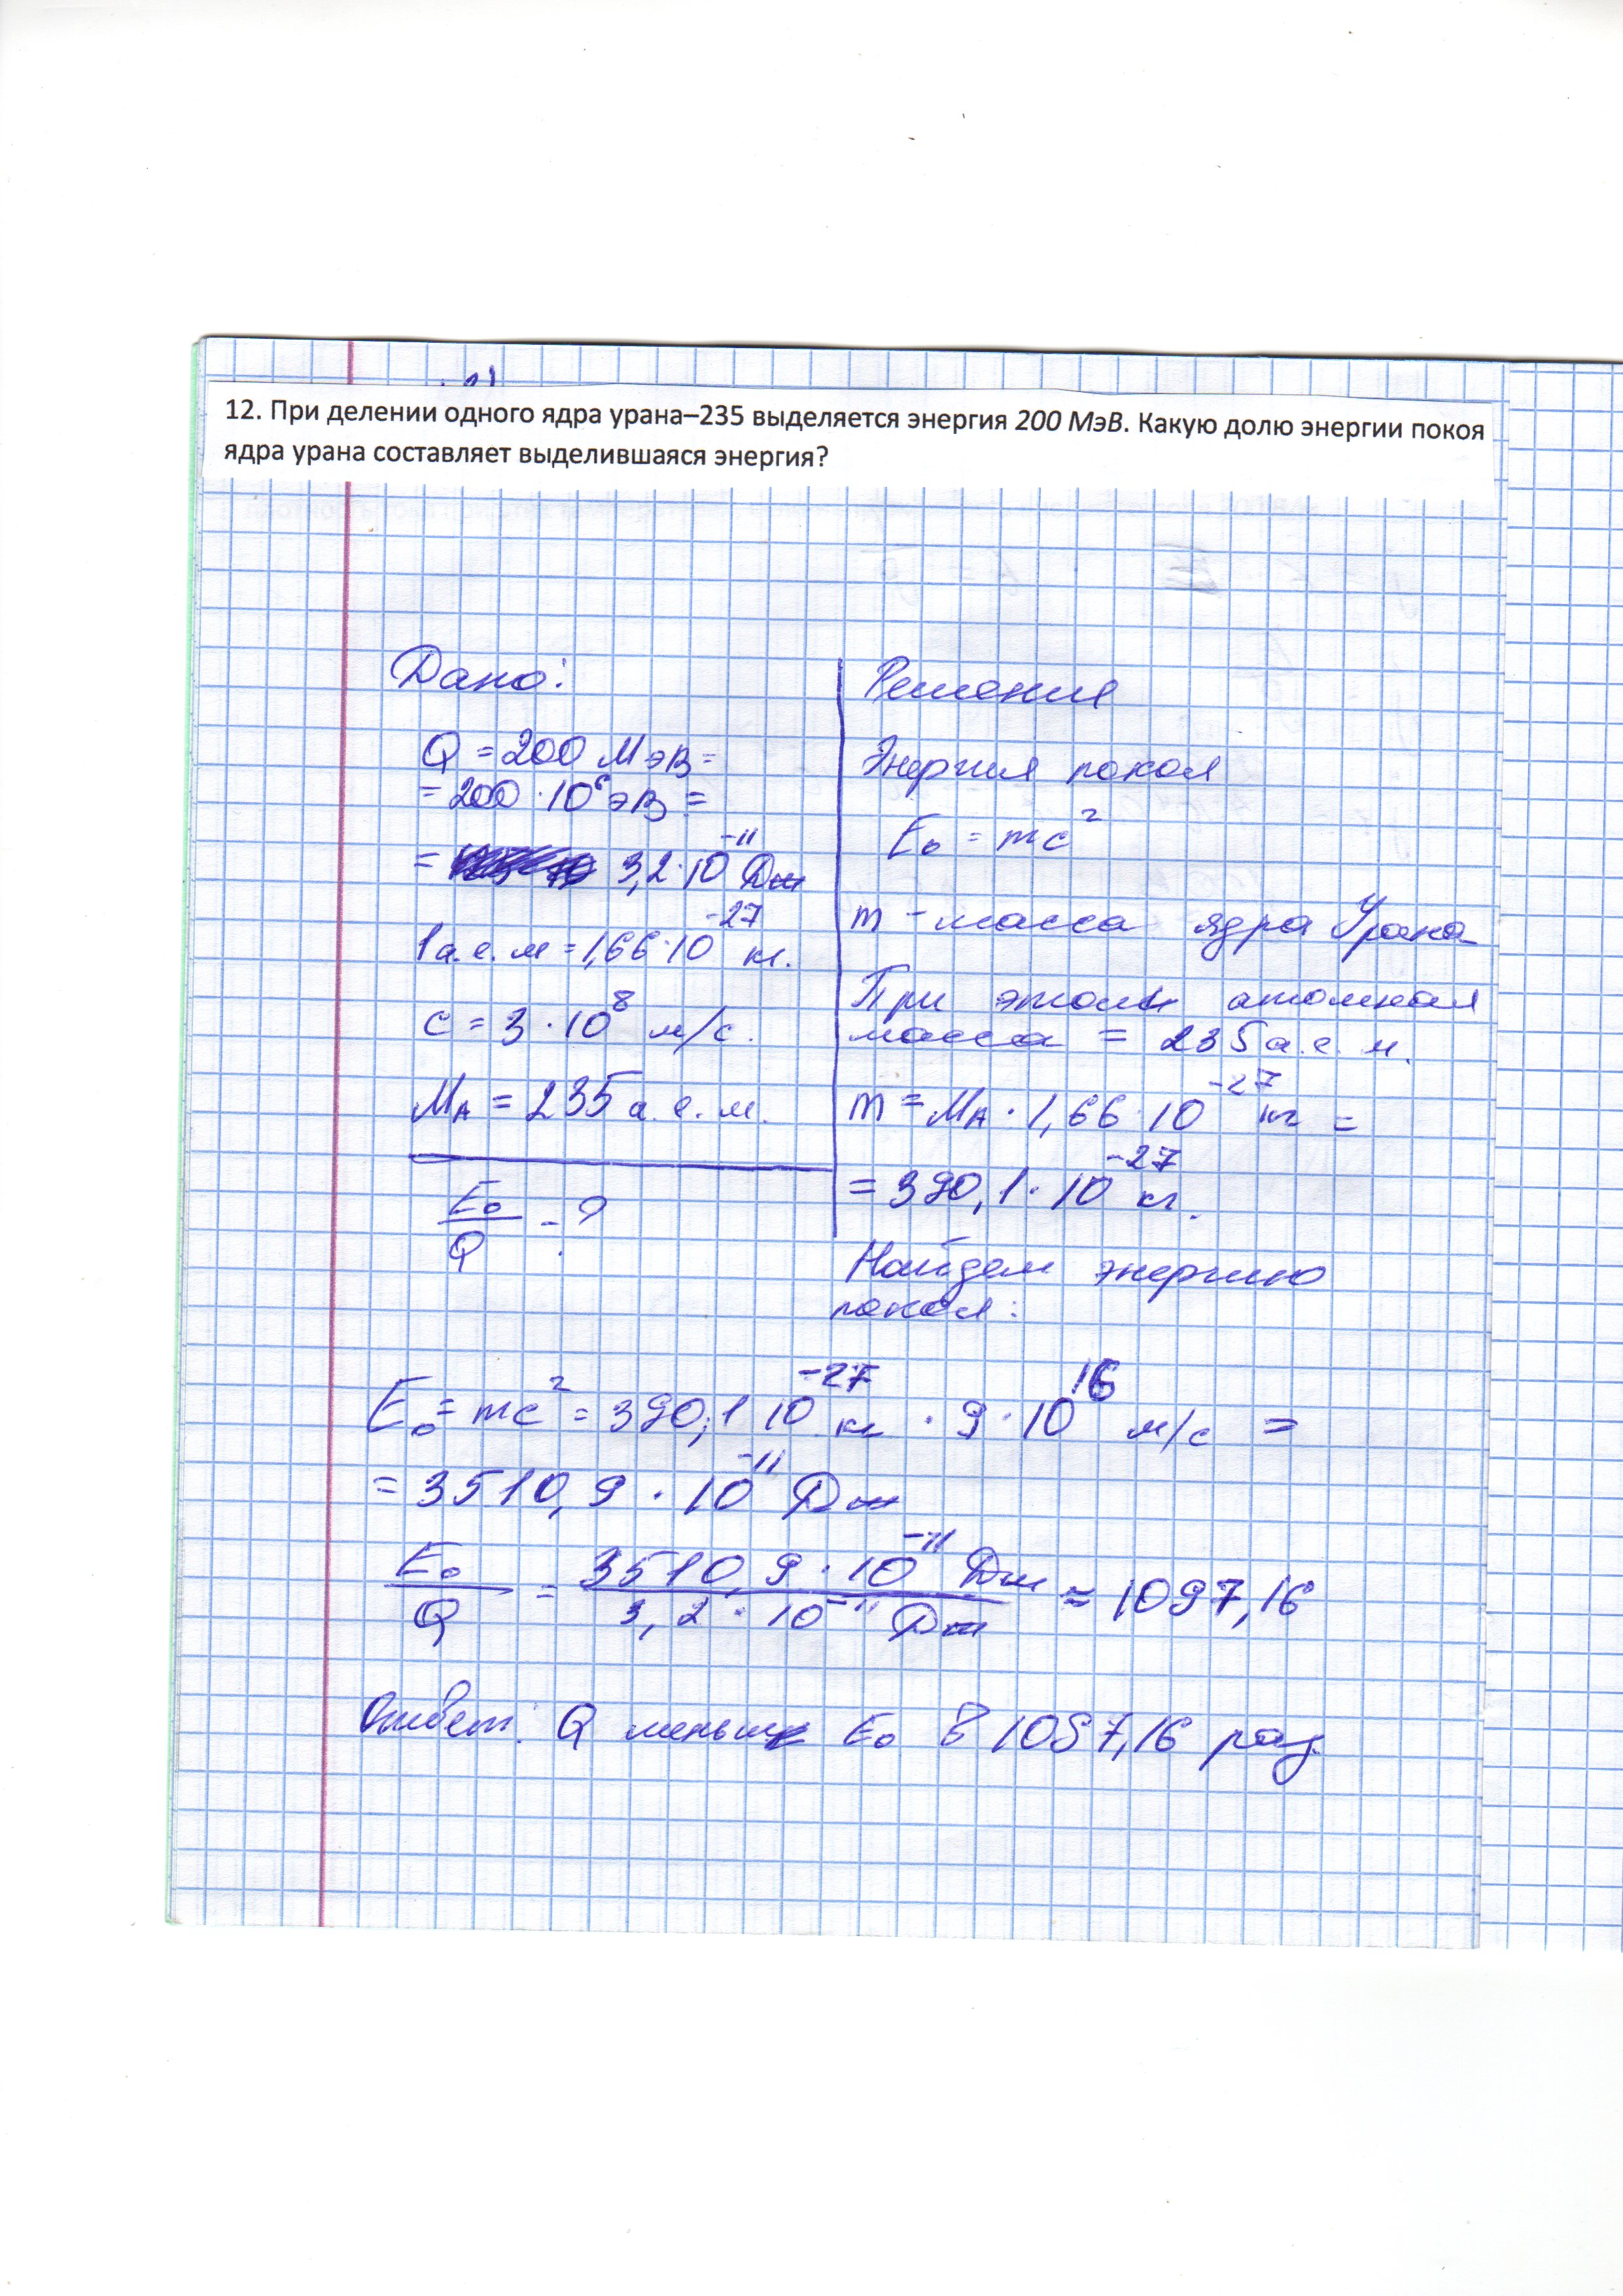 12. При делении одного ядра урана–235 выделяется энергия 200 МэВ. Какую долю энергии покоя
ядра урана составляет выделившаяся энергия?
Дано:
Q = 200 МэВ =
= 200 · 10⁶ эВ =
= 3,2 · 10⁻¹¹ Дж
1 а.е.м = 1,66 · 10⁻²⁷ кг.
c = 3 · 10⁸ м/с.
Mᴀ = 235 а.е.м.
E₀/Q - ?
Решения
Энергия покоя
E₀ = mc²
m – масса ядра Урана
При этом атомная
масса = 235 а.е.м.
m = Mᴀ · 1,66 · 10⁻²⁷ кг =
= 390,1 · 10⁻²⁷ кг.
Найдем энергию
покоя:
E₀ = mc² = 390,1 10⁻²⁷ кг · 9 · 10¹⁶ м/с =
= 3510,9 · 10⁻¹¹ Дж
E₀/Q = 3510,9 · 10⁻¹¹ Дж / 3,2 · 10⁻¹¹ Дж ≈ 1097,16
Ответ: Q меньше E₀ в 1097,16 раз